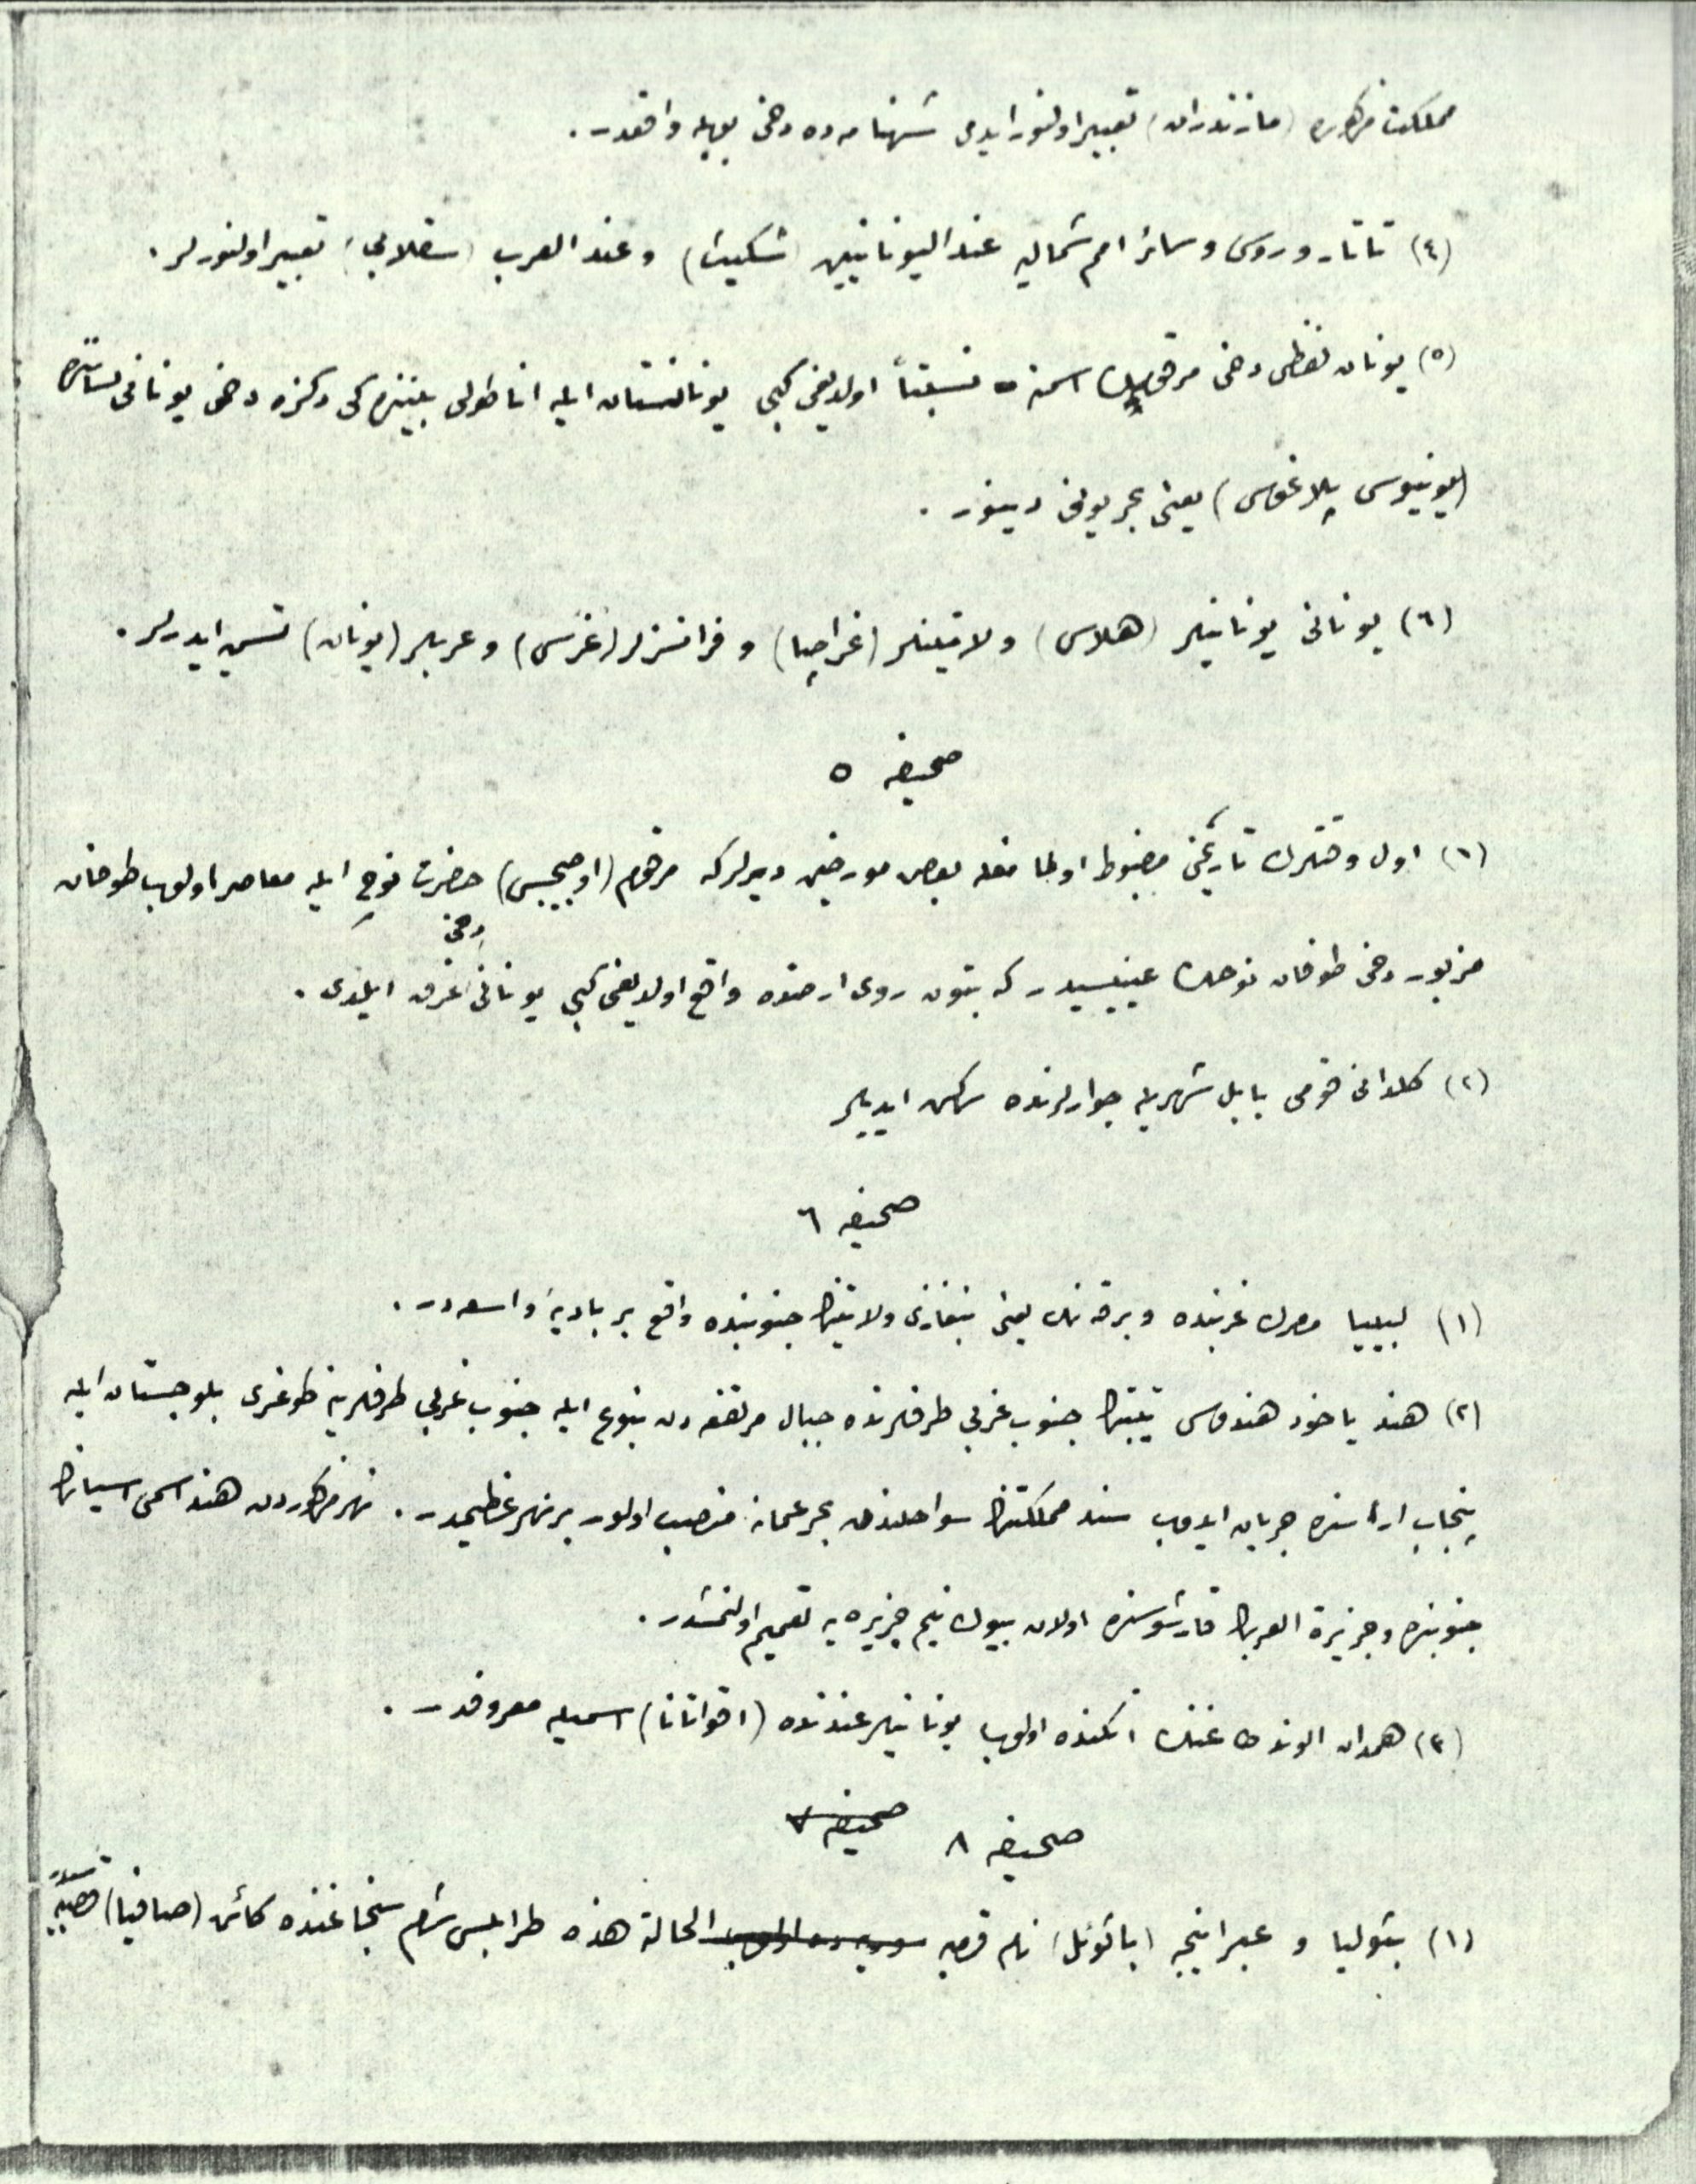 مملكت مذكوره (مازندران) تعبير اولنور ايدى شهنامه ده دخى بويله واقعدر.
(٤) تاتار و روس و سائر امم شماليه عند اليونانيين (شكيت) و عند العرب (سقلابى) تعبير اولنورلر.
(٥) يونان لفظى دخى مرقومك اسمنه نسبتاً اولديغى كبى يونانستان ايله اناطولى بيننده كى دكزه دخى يونانى لساننده
(يونيوس پلاغوس) يعنى بحر يونى دينور.
(٦) يونانى يونانيلر (هلاس) و لاتينلر (غراچيا) و فرانسزلر (غرس) و عربلر (يونان) تسميه ايدرلر.
صحيفه ٥
(١) اول وقتلرك تاريخى مضبوط اولمامغله بعض مورخين ديرلركه مرقوم (اوجيجس) حضرت نوح ايله معاصر اولوب طوفان
مزبور دخى طوفان نوحك عينيسيدر كه بتون روى ارضده واقع اولديغى كبى يونانى دخى غرق ايلدى.
(٢) كلدانى قومى بابل شهريله جوارلرنده ساكن ايديلر
صحيفه ٦
(١) ليبيا مصرك غربنده و برقه نك يعنى بنغازى ولايتنك جنوبنده واقع بر باديهٔ واسعه در.
(٢) هند ياخود هندوس تبتك جنوب غربى طرفلرنده جبال مرتفعه دن ينبوع ايله جنوب غربى طرفلرينه طوغرى بلوچستان ايله
پنجاب اراسنده جريان ايدوب سند مملكتنك سواحلندن بحر عمانه منصب اولور بر نهر عظيمدر. نهر مذكوردن هند اسمى اسيانك
جنوبنده و جزيرة العربك قارشوسنده اولان بيوك نيم جزيره يه تعميم اولنمشدر.
(٣) همدان الوند طاغنك اتكنده اولوب يونانيلر عندنده (اقواتانا) اسميله معروفدر.
صحيفه ٨ صحيفه ٧
(١) بتوليا و عبرانيجه (باتوئل) نام قريه الحالة هذه طرابلس شام سنجاغنده كائن (صافيتا) قصبه